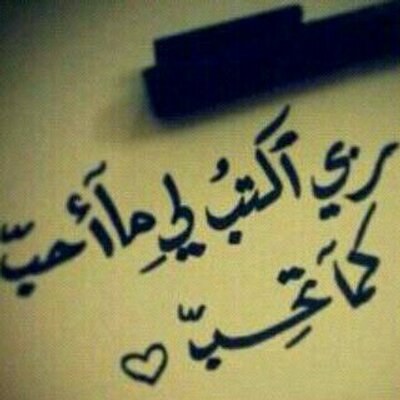 ربي ٱكتبُ لي مآ أحبّ
كمآ تحبّ